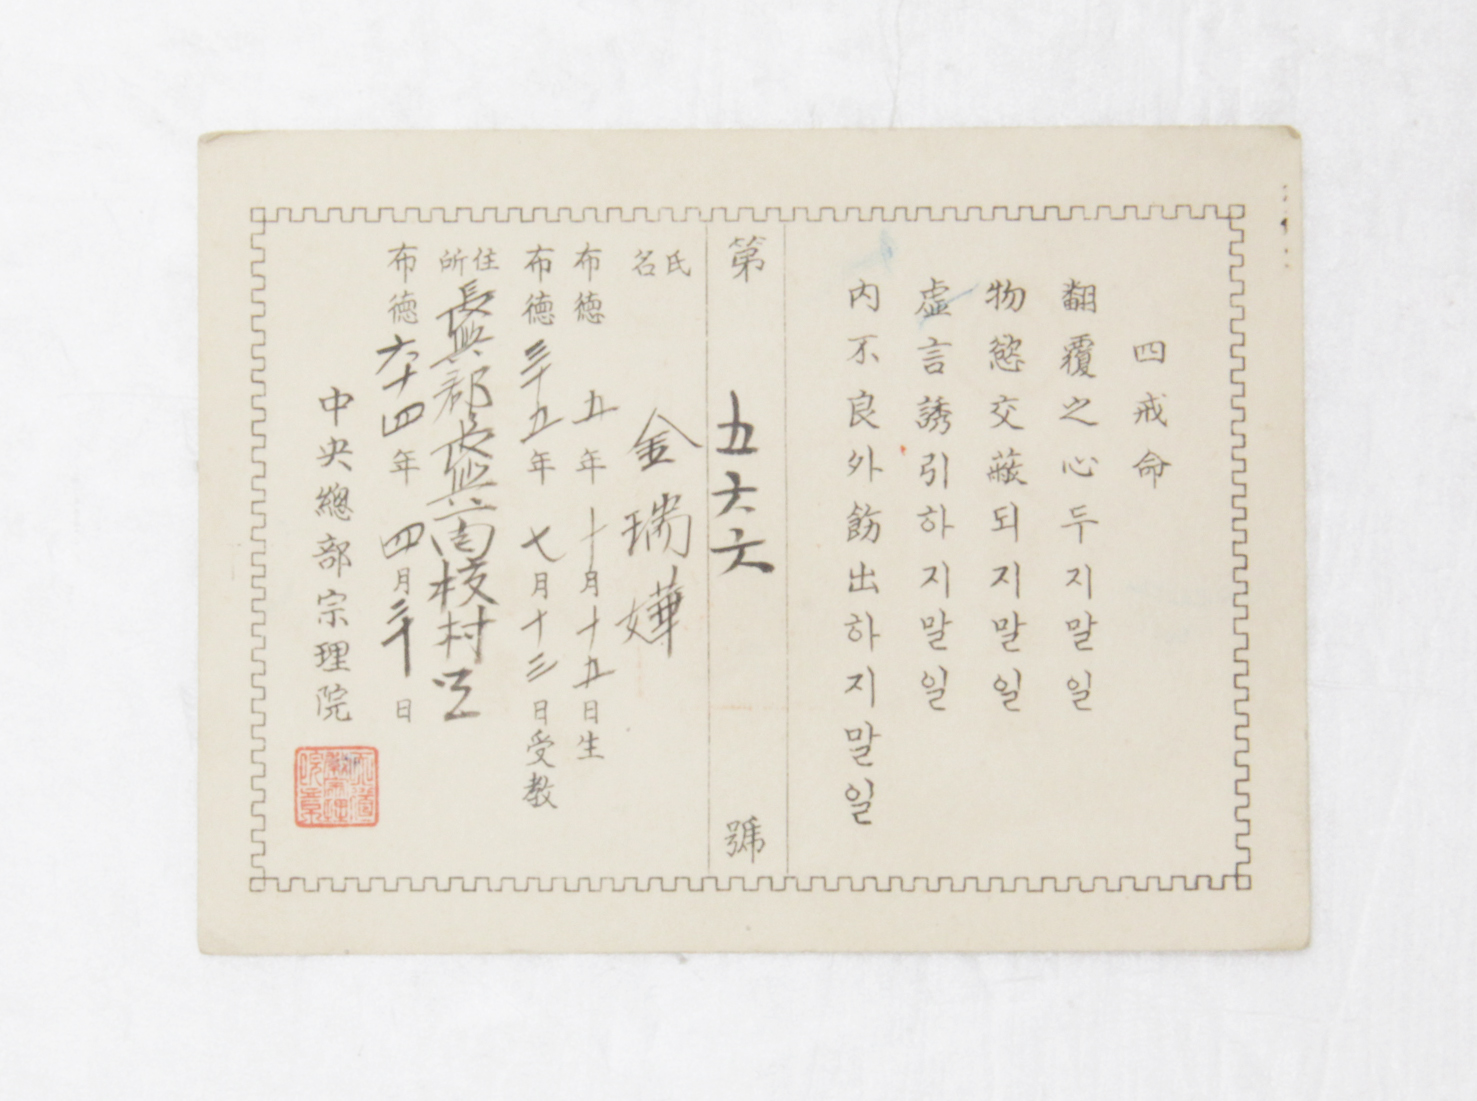 四戒命
翻覆之心두지말일
物慾交蔽되지말일
虛言誘引하지말일
內不良外飾出하지말일
第 五六六 號
氏名 金瑞嬅
布德 五年 十月十五日生
布德 三十五年 七月十三日受教
住所 長興郡長興面校村里
布德 六十四年 四月三十日
中央總部宗理院